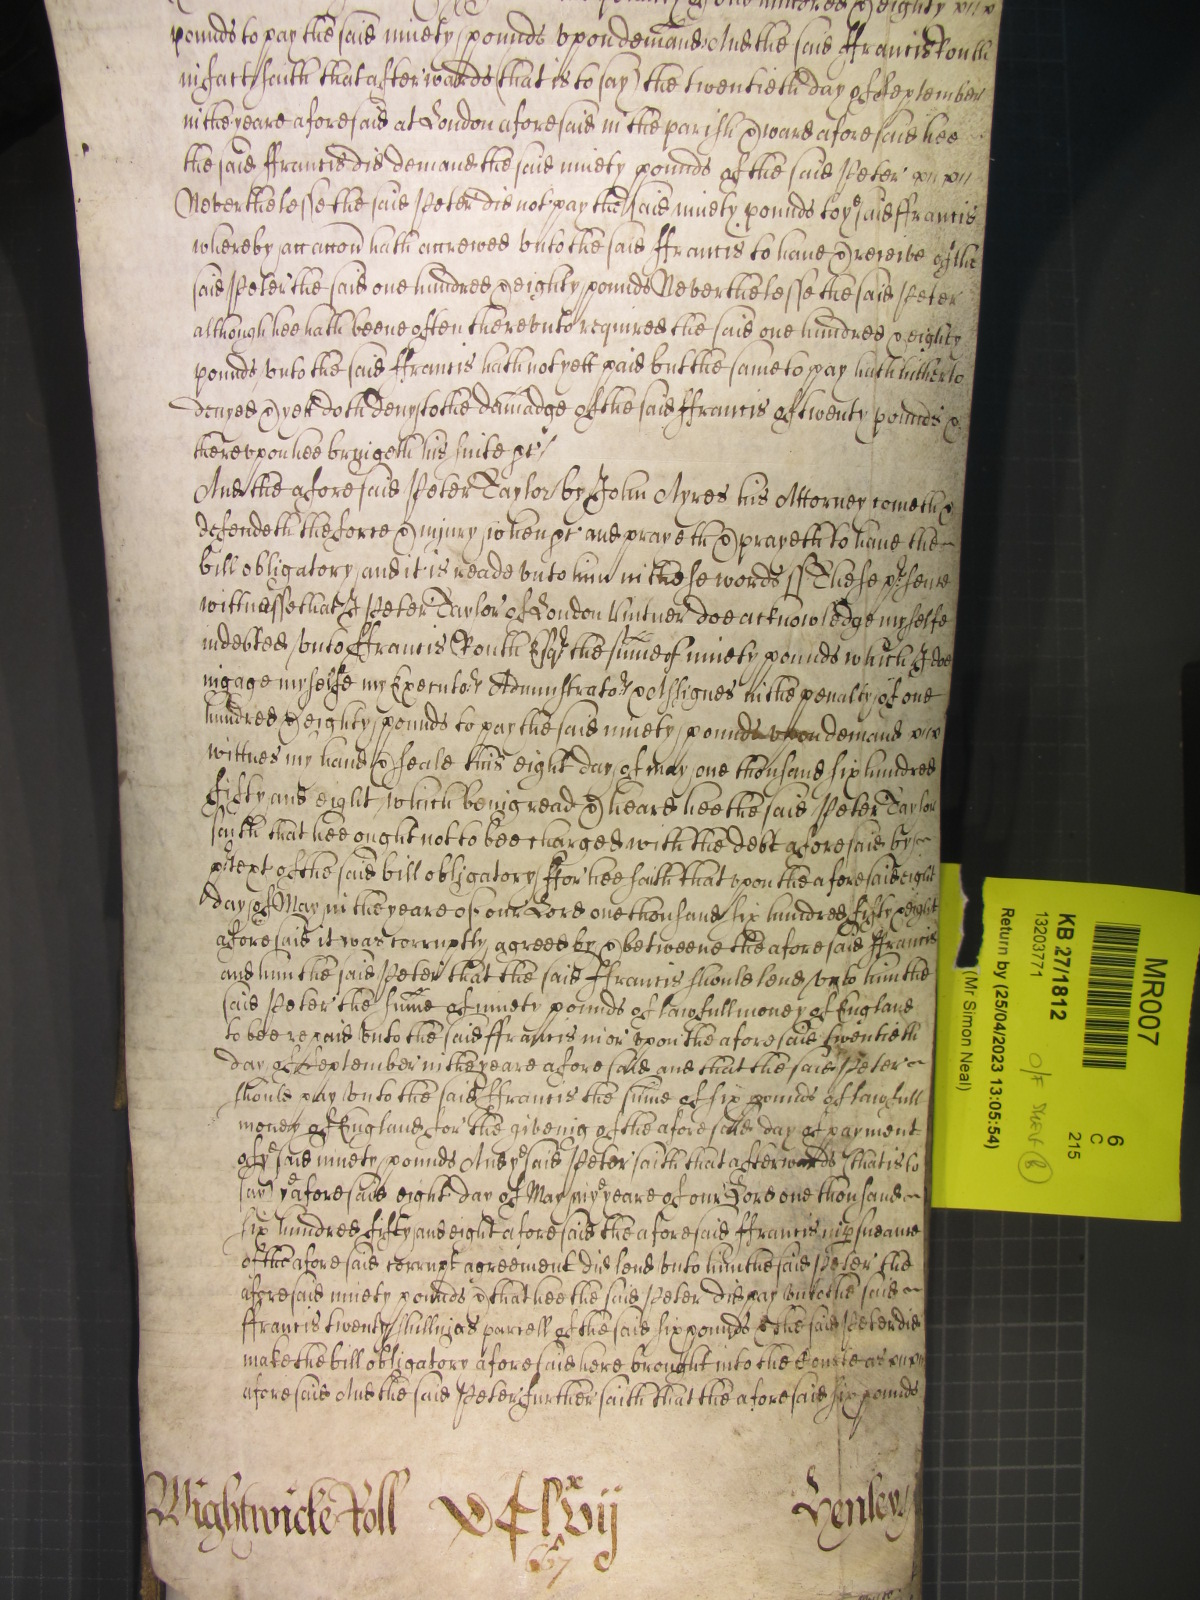 one hundred & eighty
pounds to pay the said ninety pounds vpon demand And the said ffrancis Routh
in fact saith that afterwards (that is to say) the twentieth day of September
in the yeare aforesaid at London aforesaid in the parish & ward aforesaid hee
the said ffrancis did demand the said ninety pounds of the said Peter
Neverthelesse the said Peter did not pay the said ninety pounds to ye said ffrancis
whereby an accon hath accrewed vnto the said ffrancis to haue & receive of the
said Peter the said one hundred & eighty pounds Neverthelesse the said Peter
although hee hath beene often therevnto required the said one hundred & eighty
pounds vnto the said ffrancis hath not yett paid but the same to pay hath hitherto
denyed & yett doth deny to the damadge of the said ffrancis of twenty pounds &
therevpon hee bringeth his suite &c
And the aforesaid Peter Taylor by John Ayres his Attorney cometh &
defendeth the force & iniury when &c and prayeth & prayeth to haue the
bill obligatory and it is reade vnto him in these words ss These psents
wittnesse that I Peter Taylor of London Vintner doe acknowledge myselfe
indebted vnto ffrancis Routh Esqr the sume of ninety pounds which I doe
ingage myselfe my Executors Administrators & Assignes in the penalty of one
hundred & eighty pounds to pay the said ninety pounds vpon demand
wittnes my hand & seale this eight day of may one thousand six hundred
fifty and eight which being read & heard hee the said Peter Taylor
saith that hee ought not to bee charged with the debt aforesaid by
ptext of the said bill obligatory ffor hee saith that vpon the aforesaid eight
day of May in the yeare of our Lord one thousand six hundred fifty & eight
aforesaid it was corruptly agreed by & betweene the aforesaid ffrancis
and him the said Peter that the said ffrancis should lend vnto him the
said Peter the sume of ninety pounds of lawfull money of England
to bee repaid vnto the said ffrancis in or vpon the aforesaid twentieth
day of September in the yeare aforesaid and that the said Peter
should pay vnto the said ffrancis the sume of six pounds of lawfull
money of England for the giveing of the aforesaid day of payment
of ye said ninety pounds And ye said Peter saith that afterwards (that is to
say) ye aforesaid eight day of May in ye yeare of our Lord one thousand
six hundred fifty and eight aforesaid the aforesaid ffrancis in psueance
of the aforesaid corrupt agreement did lend vnto him the said Peter the
aforesaid ninety pounds & that hee the said Peter did pay vnto the said
ffrancis twenty shillings parcell of the said six pounds & the said Peter did
make the bill obligatory aforesaid here brought into the Courte as
aforesaid And the said Peter further saith that the aforesaid six pounds
Wightwicke Roll
Henley
657
MR007
6
C
215
KB 27/1812
13203771
O/F Shelf B
Return by (25/04/2023 13:05:54)
(Mr Simon Neal)